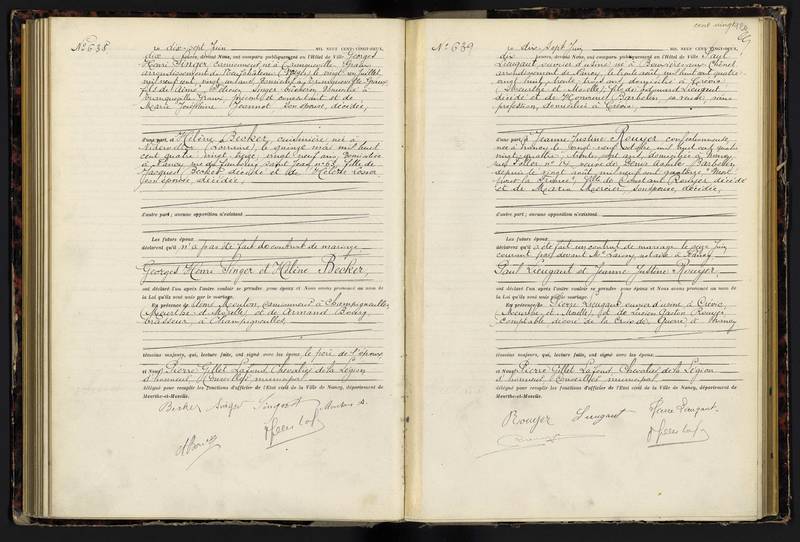 N° 638
Le dix-sept Juin MIL NEUF CENT VINGT-DEUX,
dix heures, devant Nous, ont comparu publiquement en l'Hôtel de Ville Georges
Henri Singer né à
arrondissement de Neufchâteau (Vosges) le neuf Juillet
mil neuf cent, vingt un ans, domicilié à
fils de Aimé Singer domicilié à
et de
Marie Joséphine Jeannot son épouse, décédée,
d'une part, et Hélène Becker, cuisinière née à
(Lorraine) le quinze mai mil huit
cent quatre vingt treize, vingt neuf ans, domiciliée
à Nancy, Faubourg Saint Jean n° 63, fille de
Jacques Becker décédé et de Hélène
son épouse, décédée,
d'autre part ; aucune opposition n'existant
Les futurs époux
déclarent qu'il n'a pas été fait de contrat de mariage
Georges Henri Singer et Hélène Becker,
ont déclaré l'un après l'autre vouloir se prendre pour époux et Nous avons prononcé au nom de
la Loi qu'ils sont unis par le mariage.
En présence de Moulon, à Champigneulles
(Meurthe et Moselle) et de Armand Bourg
brasseur, à Champigneulles,
témoins majeurs, qui, lecture faite, ont signé avec les époux le père de l'époux
et Nous Pierre Gillet Lafond Chevalier de la Légion
d'honneur Conseiller municipal
délégué pour remplir les fonctions d'officier de l'État civil de la Ville de Nancy, département de
Meurthe-et-Moselle.
Becker Singer Singer Moulon
cent vingt
N° 639
Le dix-sept Juin MIL NEUF CENT VINGT-DEUX,
dix heures, devant Nous, ont comparu publiquement en l'Hôtel de Ville Paul
Lieugaut, ouvrier d'usine né à
arrondissement de Nancy, le trente août, mil huit cent quatre
vingt huit, trente trois ans, domicilié à Crévic
(Meurthe et Moselle) fils de Lieugaut
décédé et de Honorine Barbelin sa veuve, sans
profession, domiciliée à Crévic,
d'une part, et Jeanne Justine Rouyer
née à Nancy le vingt neuf mil huit cent quatre
vingt quatre, trente sept ans, domiciliée à Nancy,
rue n° 16, veuve de Barbelin
depuis le vingt août, mil neuf cent quatorze, "Mort
pour la France". fille de Constant Rouyer décédé
et de Maria Mercier, son épouse, décédée,
d'autre part ; aucune opposition n'existant
Les futurs époux
déclarent qu'il a été fait un contrat de mariage le seize Juin
courant, par devant Me notaire à Nancy
Paul Lieugaut et Jeanne Justine Rouyer,
ont déclaré l'un après l'autre vouloir se prendre pour époux et Nous avons prononcé au nom de
la Loi qu'ils sont unis par le mariage.
En présence de Pierre Lieugaut ouvrier d'usine à Crévic,
(Meurthe et Moselle), et de Lucien Gaston Rouyer
comptable décoré de la Croix de Guerre à Nancy
témoins majeurs, qui, lecture faite, ont signé avec les époux
et Nous Pierre Gillet Lafond Chevalier de la Légion
d'honneur Conseiller municipal
délégué pour remplir les fonctions d'officier de l'État civil de la Ville de Nancy, département de
Meurthe-et-Moselle.
Rouyer Lieugaut Pierre Lieugaut